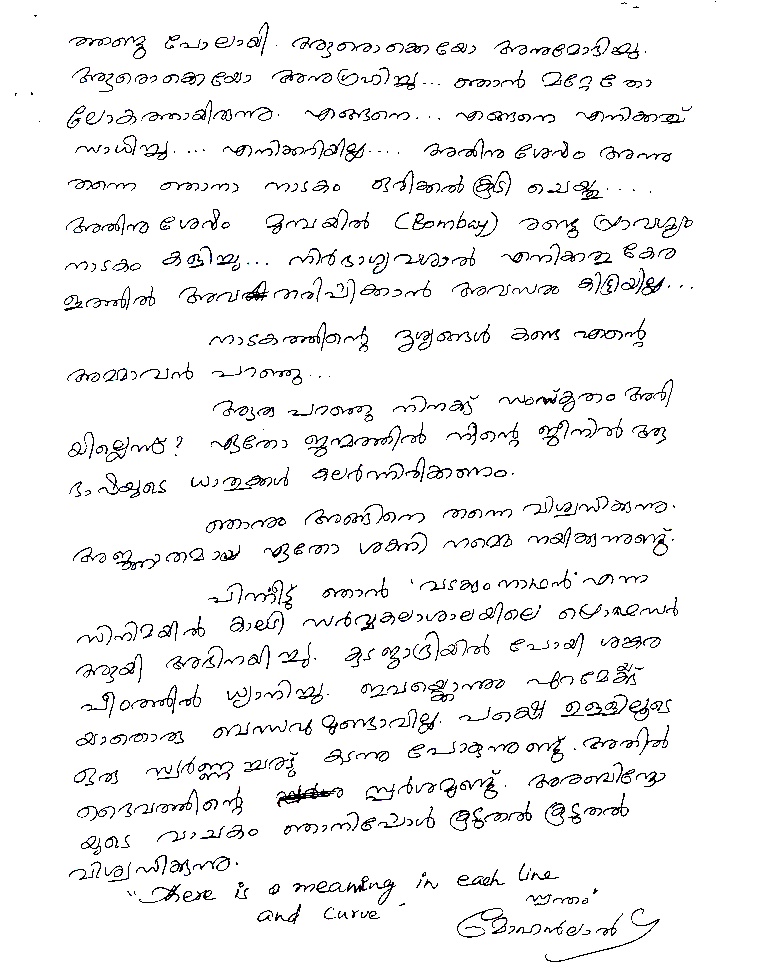 ഞണ്ടു പോലായി. ആരൊക്കെയോ അനുമോദിച്ചു.
ആരൊക്കെയോ അനുഗ്രഹിച്ചു... ഞാൻ മറ്റേതോ
ലോകത്തായിരുന്നു. എങ്ങനെ... എങ്ങനെ എനിക്കത്
സാധിച്ചു.... എനിക്കറിയില്ല.... അതിനു ശേഷം അന്നു
തന്നെ ഞാനാ നാടകം ഒരിക്കൽ കൂടി ചെയ്തു....
അതിനു ശേഷം മുമ്പയിൽ (Bombay) രണ്ടു പ്രാവശ്യം
നാടകം കളിച്ചു... നിർഭാഗ്യവശാൽ എനിക്കതു കേര
ളത്തിൽ അവതരിപ്പിക്കാൻ അവസരം കിട്ടിയില്ല...
നാടകത്തിന്റെ ദൃശ്യങ്ങൾ കണ്ട എന്റെ
അമ്മാവൻ പറഞ്ഞു...
ആരു പറഞ്ഞു നിനക്ക് സംസ്കൃതം അറി
യില്ലെന്ന്? ഏതോ ജന്മത്തിൽ നിന്റെ ജീനിൽ ആ
ഭാഷയുടെ ധാതുക്കൾ കലർന്നിരിക്കണം.
ഞാനും അങ്ങിനെ തന്നെ വിശ്വസിക്കുന്നു.
അജ്ഞാതമായ ഏതോ ശക്തി നമ്മെ നയിക്കുന്നുണ്ട്.
പിന്നീട്ട് ഞാൻ 'വടക്കുംനാഥൻ' എന്ന
സിനിമയിൽ കാലടി സർവ്വകലാശാലയിലെ പ്രൊഫസർ
ആയി അഭിനയിച്ചു. കുടജാദ്രിയിൽ പോയി ശങ്കര
പീഠത്തിൽ ധ്യാനിച്ചു. ഇവയ്ക്കൊന്നും പുറമേക്ക്
യാതൊരു ബന്ധവുമുണ്ടാവില്ല. പക്ഷെ ഉള്ളിലൂടെ
ഒരു സ്വർണ്ണച്ചരട് കടന്നു പോകുന്നുണ്ട്. അതിൽ
ദൈവത്തിന്റെ സ്പർശമുണ്ട്. അരബിന്ദോ
യുടെ വാചകം ഞാനിപ്പോൾ കൂടുതൽ കൂടുതൽ
വിശ്വസിക്കുന്നു.
"There is a meaning in each line
and curve"
സ്വന്തം
മോഹൻലാൽ